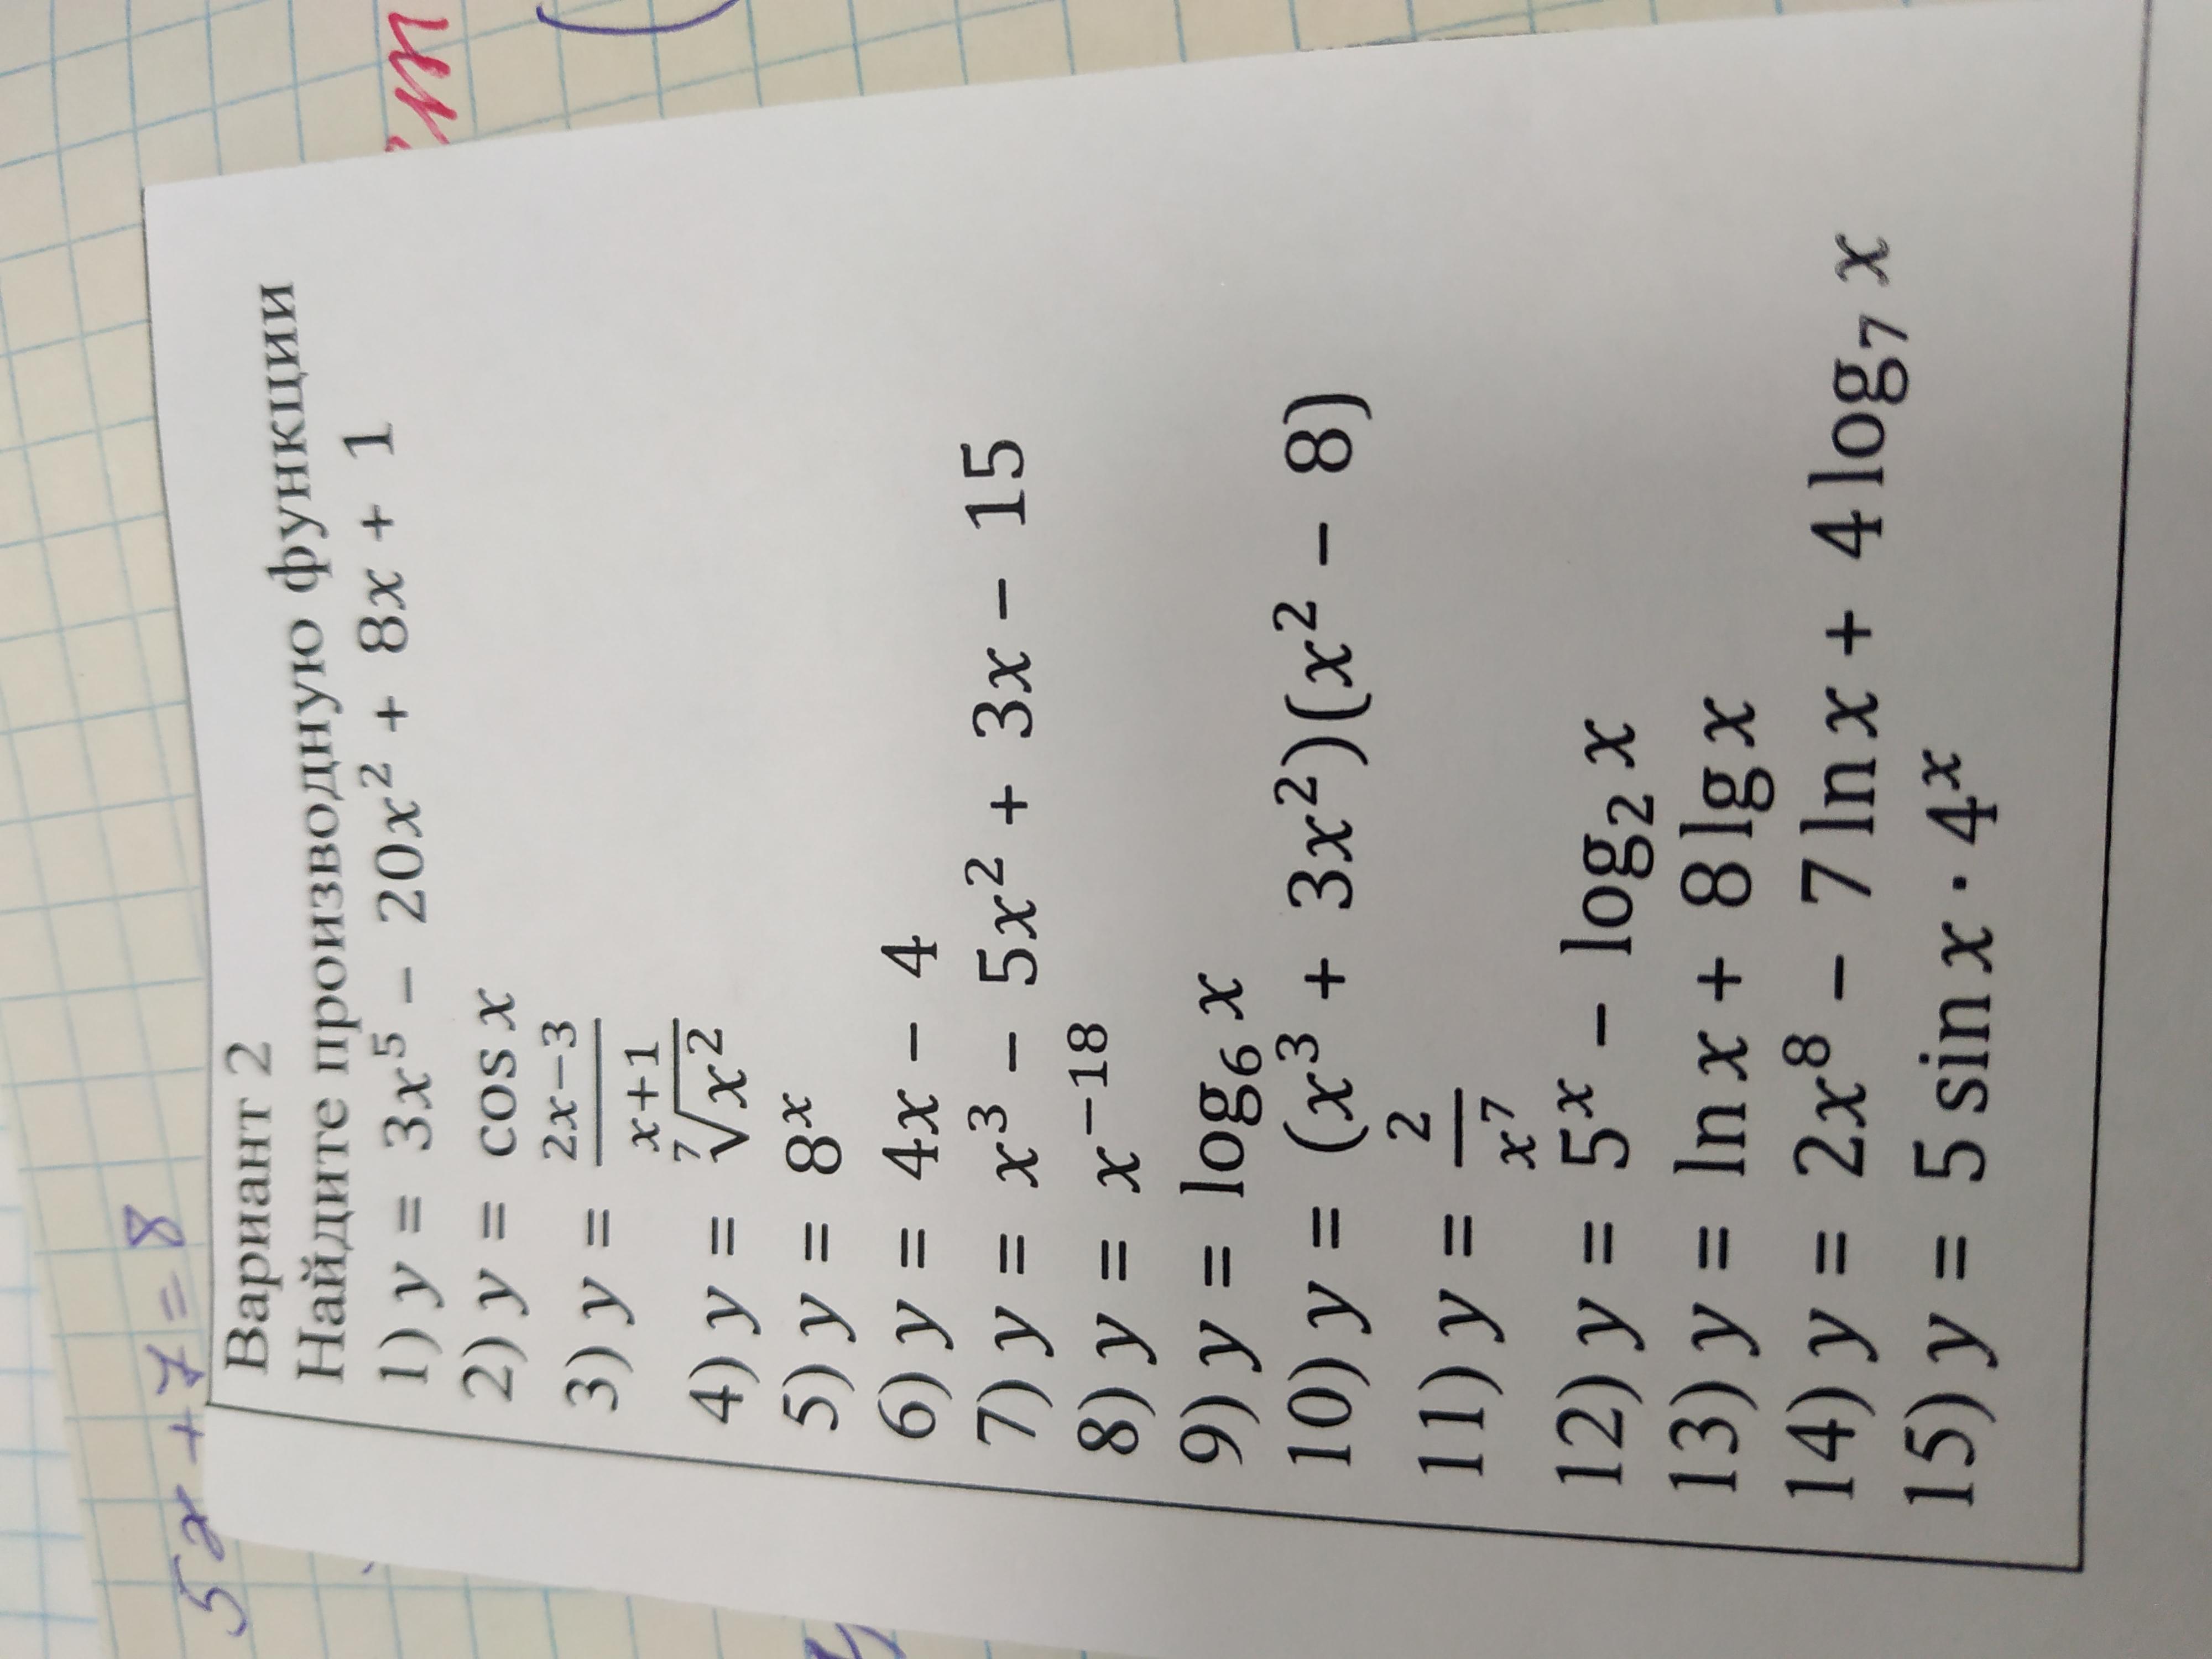 5x + 7 = 8
Вариант 2
Найдите производную функции
1) y = 3x⁵ − 20x² + 8x + 1
2) y = cos x
3) y = (2x−3)/(x+1)
4) y = ⁷√x²
5) y = 8ˣ
6) y = 4x − 4
7) y = x³ − 5x² + 3x − 15
8) y = x⁻¹⁸
9) y = log₆ x
10) y = (x³ + 3x²)(x² − 8)
11) y = 2/x⁷
12) y = 5ˣ − log₂ x
13) y = ln x + 8 lg x
14) y = 2x⁸ − 7 ln x + 4 log₇ x
15) y = 5 sin x · 4ˣ